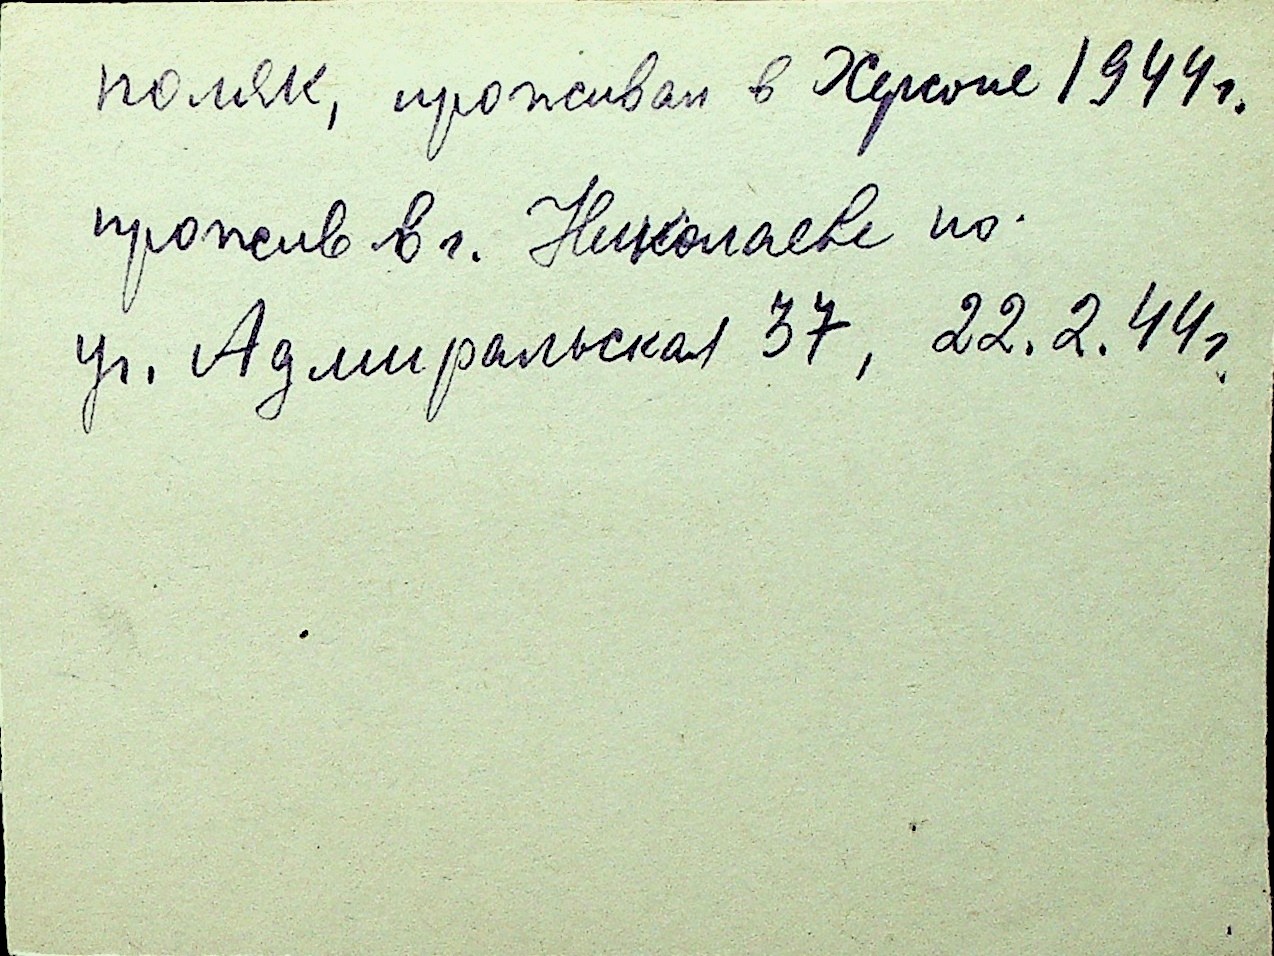 поляк, проживал в Херсоне 1944г.
прожив в г. Николаеве по
ул. Адмиральская 37, 22.2.44г.